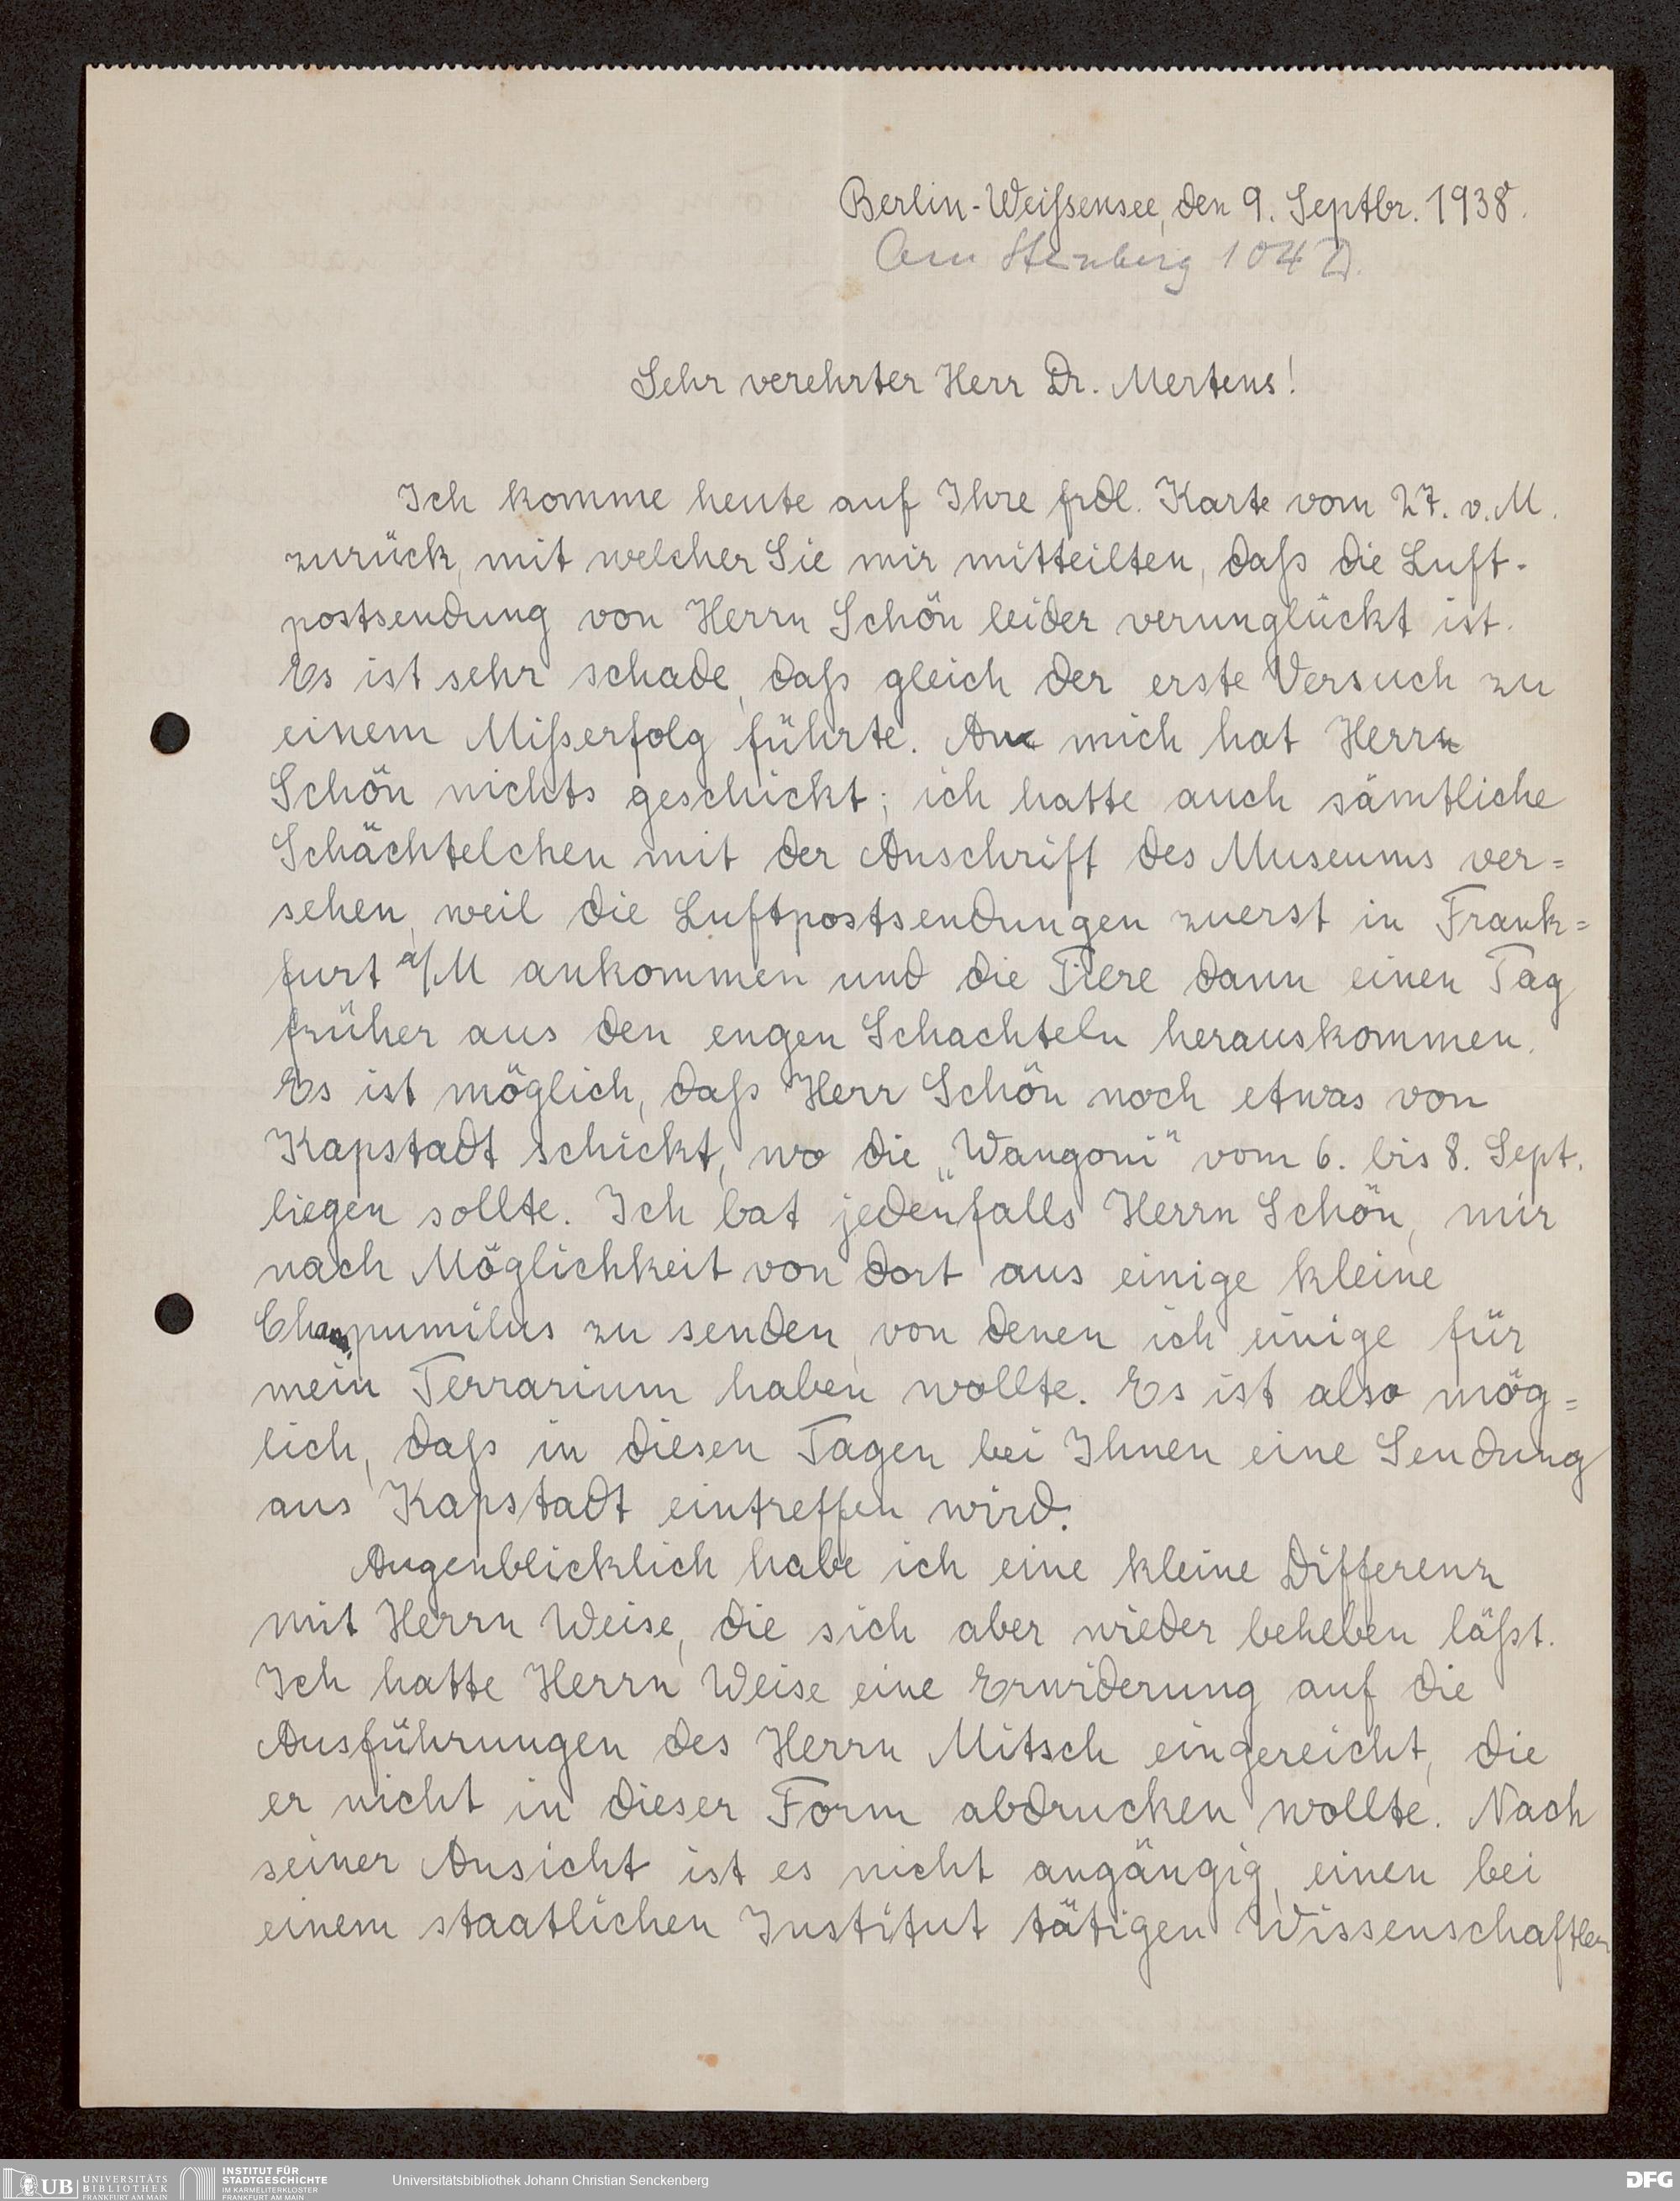 Berlin-Weißensee, den 9. Septbr. 1938.
Am Steinberg 104 D.
Sehr verehrter Herr Dr. Mertens!
Ich komme heute auf Ihre frdl. Karte vom 27. v. M.
zurück, mit welcher Sie mir mitteilten, daß die Luft-
postsendung von Herrn Schön leider verunglückt ist.
Es ist sehr schade, daß gleich der erste Versuch zu
einem Mißerfolg führte. An mich hat Herr
Schön nichts geschickt; ich hatte auch sämtliche
Schächtelchen mit der Anschrift des Museums ver=
sehen, weil die Luftpostsendungen zuerst in Frank=
furt a/M ankommen und die Tiere dann einen Tag
früher aus den engen Schachteln herauskommen.
Es ist möglich, daß Herr Schön noch etwas von
Kapstadt schickt, wo die „Wangoni“ vom 6. bis 8. Sept.
liegen sollte. Ich bat jedenfalls Herrn Schön, mir
nach Möglichkeit von dort aus einige kleine
Cham. pumilus zu senden, von denen ich einige für
mein Terrarium haben wollte. Es ist also mög=
lich, daß in diesen Tagen bei Ihnen eine Sendung
aus Kapstadt eintreffen wird.
Augenblicklich habe ich eine kleine Differenz
mit Herrn Weise, die sich aber wieder beheben läßt.
Ich hatte Herrn Weise eine Erwiderung auf die
Ausführungen des Herrn Mitsch eingereicht, die
er nicht in dieser Form abdrucken wollte. Nach
seiner Ansicht ist es nicht angängig, einen bei
einem staatlichen Institut tätigen Wissenschaftler
UB UNIVERSITÄTS
BIBLIOTHEK
FRANKFURT AM MAIN
INSTITUT FÜR
STADTGESCHICHTE
IM KARMELITERKLOSTER
FRANKFURT AM MAIN
Universitätsbibliothek Johann Christian Senckenberg
DFG